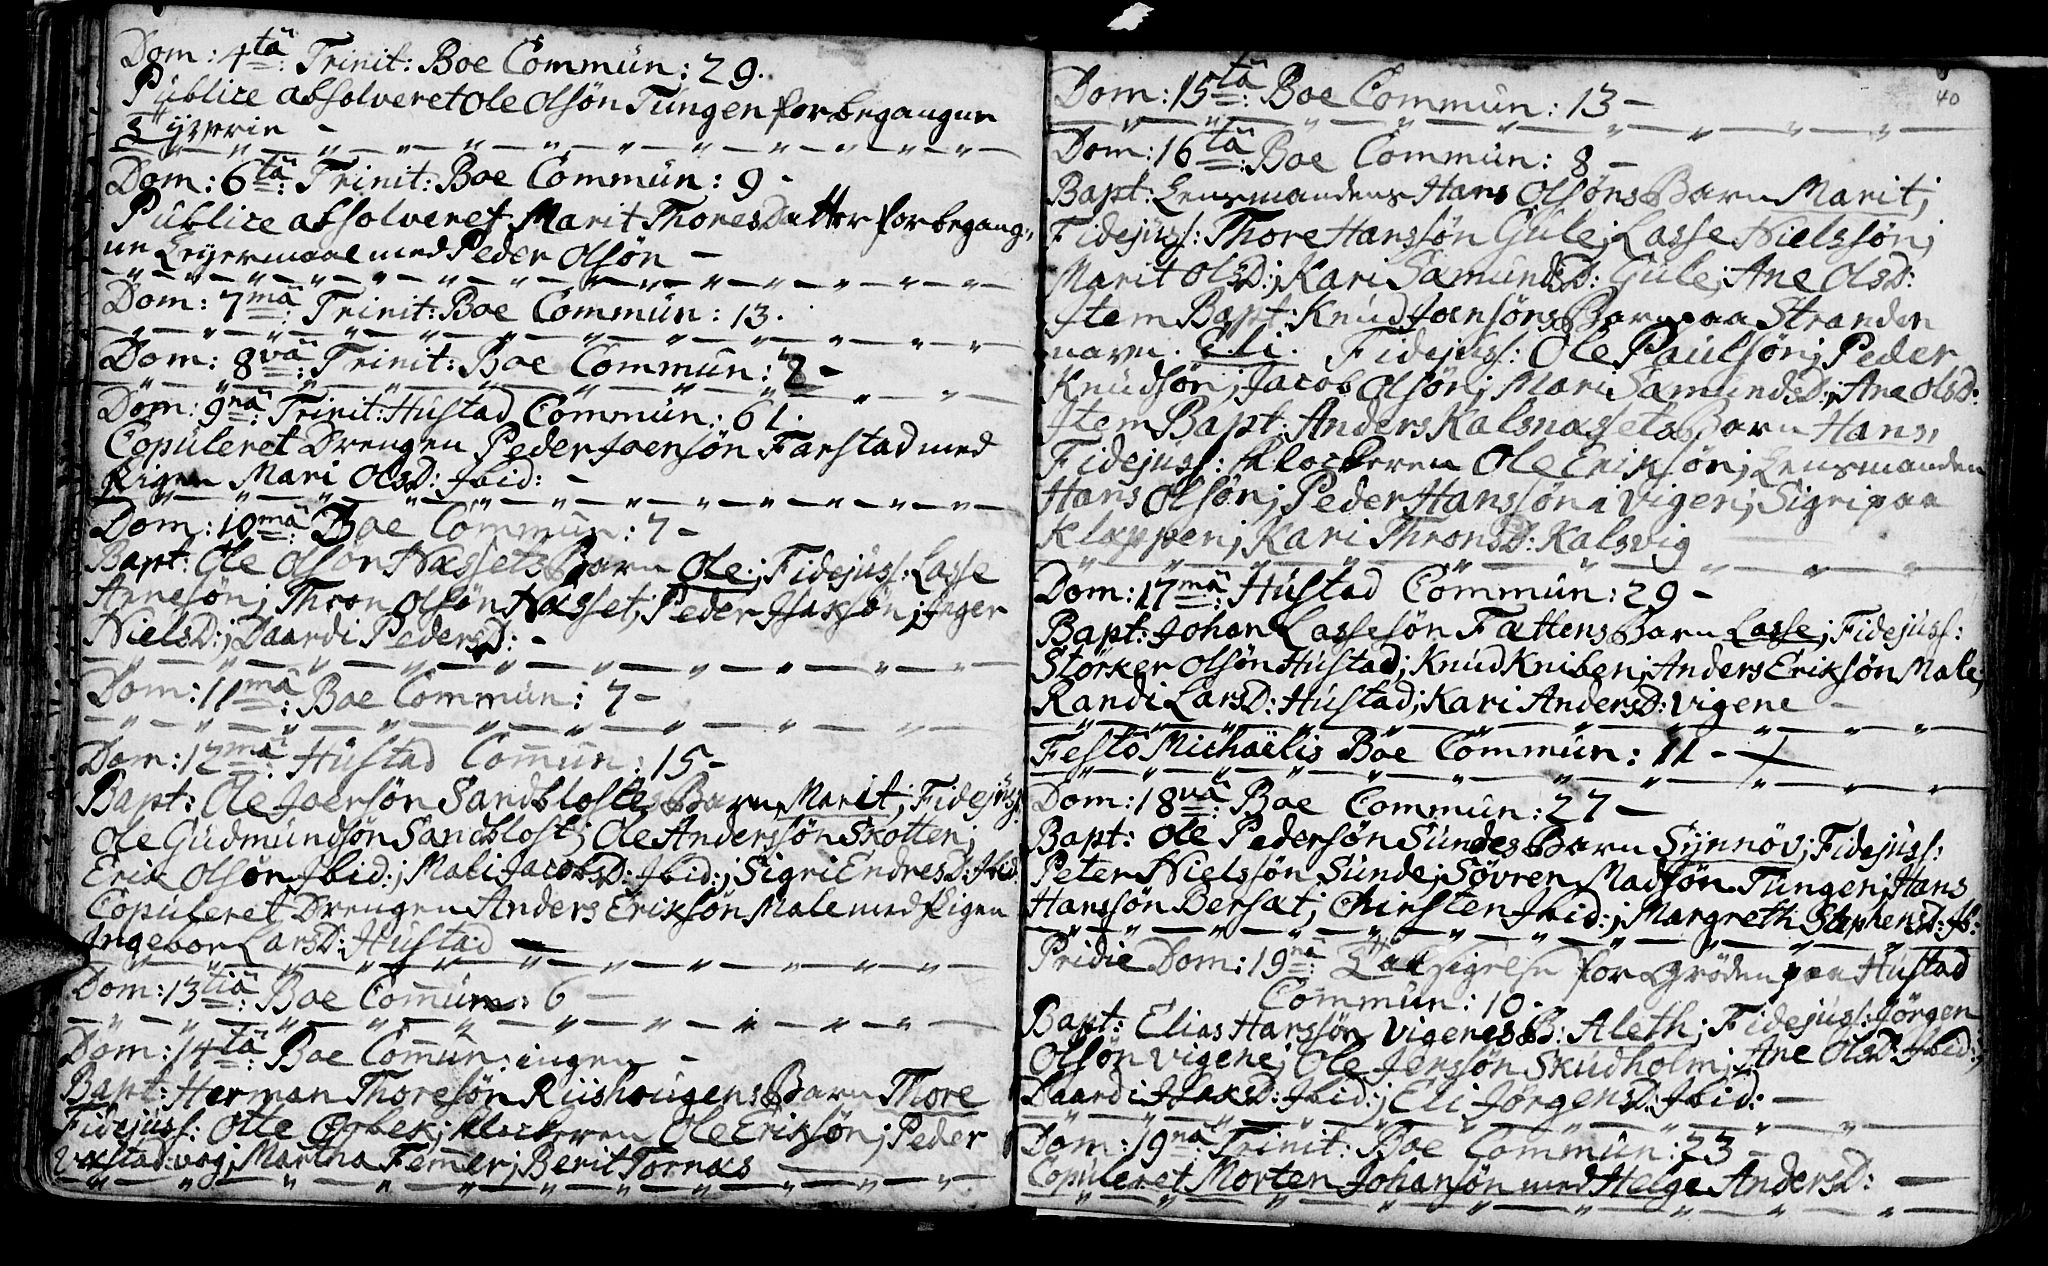 Dom: 4tâ: Trinit: Boe Commûn: 29.
Pûblice absolveret Ole Olsön Tûngen for begangen
Leyerie -
Dom: 6tâ: Trinit: Boe Commûn: 9 -
Pûblice absolveret Marit ThoresDatter for begang-
ne Leyermaal med Peder Olsön -
Dom: 7mâ: Trinit: Boe Commûn: 13.
Dom: 8vâ: Trinit: Boe Commûn: 2 -
Dom: 9nâ: Trinit: Hûstad Commûn: 61.
Copûleret Drengen Peder Joensön Farstad med
Pigen Mari OlsD: Ibid: -
Dom: 10mâ: Boe Commûn: 7 -
Bapt: Ole Olsön Næssets Barn Ole; Fidejûss: Lasse
Arnesön; Thron Olsön Næsset; Peder Isaksön; Inger
NielsD:; Daardi PedersD: -
Dom: 11mâ: Boe Commûn: 7 -
Dom: 12mâ: Hûstad Com̄ûn: 15 -
Bapt: Ole Joensön Sandblostes Barn Marit; Fidejûss:
Ole Gûdmûndsön Sandblost; Ole Anderssön Skotten;
Erik Olsön Ibid:; Mali JacobsD: Ibid:; Sigri EndresD: Ibid:
Copûleret Drengen Anders Eriksön Male med Pigen
Ingebor LarsD: Hûstad
Dom: 13tiâ: Boe Com̄ûn: 6 -
Dom: 14tâ: Boe Com̄ûn: ingen -
Bapt: Herman Thoresön Riishoûgens Barn Thore
Fidejûss: Otte Ørbek; Klockeren Ole Eriksön; Peder
Martha Fem̄er; Berit Tornæs
40
Dom: 15tâ: Boe Commûn: 13 -
Dom: 16tâ: Boe Commûn: 8 -
Bapt: Lensmandens Hans Olsöns Barn Marit;
Fidejûss: Thore Hanssön Gûle; Lasse Nielssön;
Marit OlsD:; Kari SamûndsD: Gûle; Ane OlsD:
Item Bapt: Knûd Joensöns Barn paa Stranden
navn. Eli. Fidejûss: Ole Paûlsön; Peder
Knûdsön; Jacob Olsön; Mari SamûndsD:; Ane OlsD:
Item Bapt: Anders Kalsnæssets Barn Hans,
Fidejûss: Klockeren Ole Eriksön; Lensmanden
Hans Olsön; Peder Hanssön i Vigen; Sigri paa
Klappen; Kari ThronsD: Kalsvig
Dom: 17mâ: Hûstad Commûn: 29 -
Bapt: Johan Lassesön Fættens Barn Lasse; Fidejûss:
Störker Olsön Hûstad; Knûd Kniben; Anders Eriksön Male,
Randi LarsD: Hûstad; Kari AndersD: Vigene -
Festo Michaëlis Boe Commûn: 11 -
Dom: 18vâ: Boe Commûn: 27 -
Bapt: Ole Pedersön Sûndes Barn Synnöv; Fidejûss:
Peter Nielssön Sûnde; Sövren Madsön Tûngen; Hans
Hanssön Bersæt; Chirsten Ibid:; Margreth StephensD: Ib:
Pridie Dom: 19nâ: Taksigelse for Gröden paa Hûstad
Commûn: 10 -
Bapt: Elias Hanssön Vigenes B: Aleth; Fidejûss: Jörgen
Olsön Vigene; Ole Jenssön Skûdholm; Ane OlsD: Ibid:;
Daardi IsaksD: Ibid:; Eli JörgensD: Ibid: -
Dom: 19nâ: Trinit: Boe Commûn: 23 -
Copûleret Morten Johansön med Helge AndersD: -